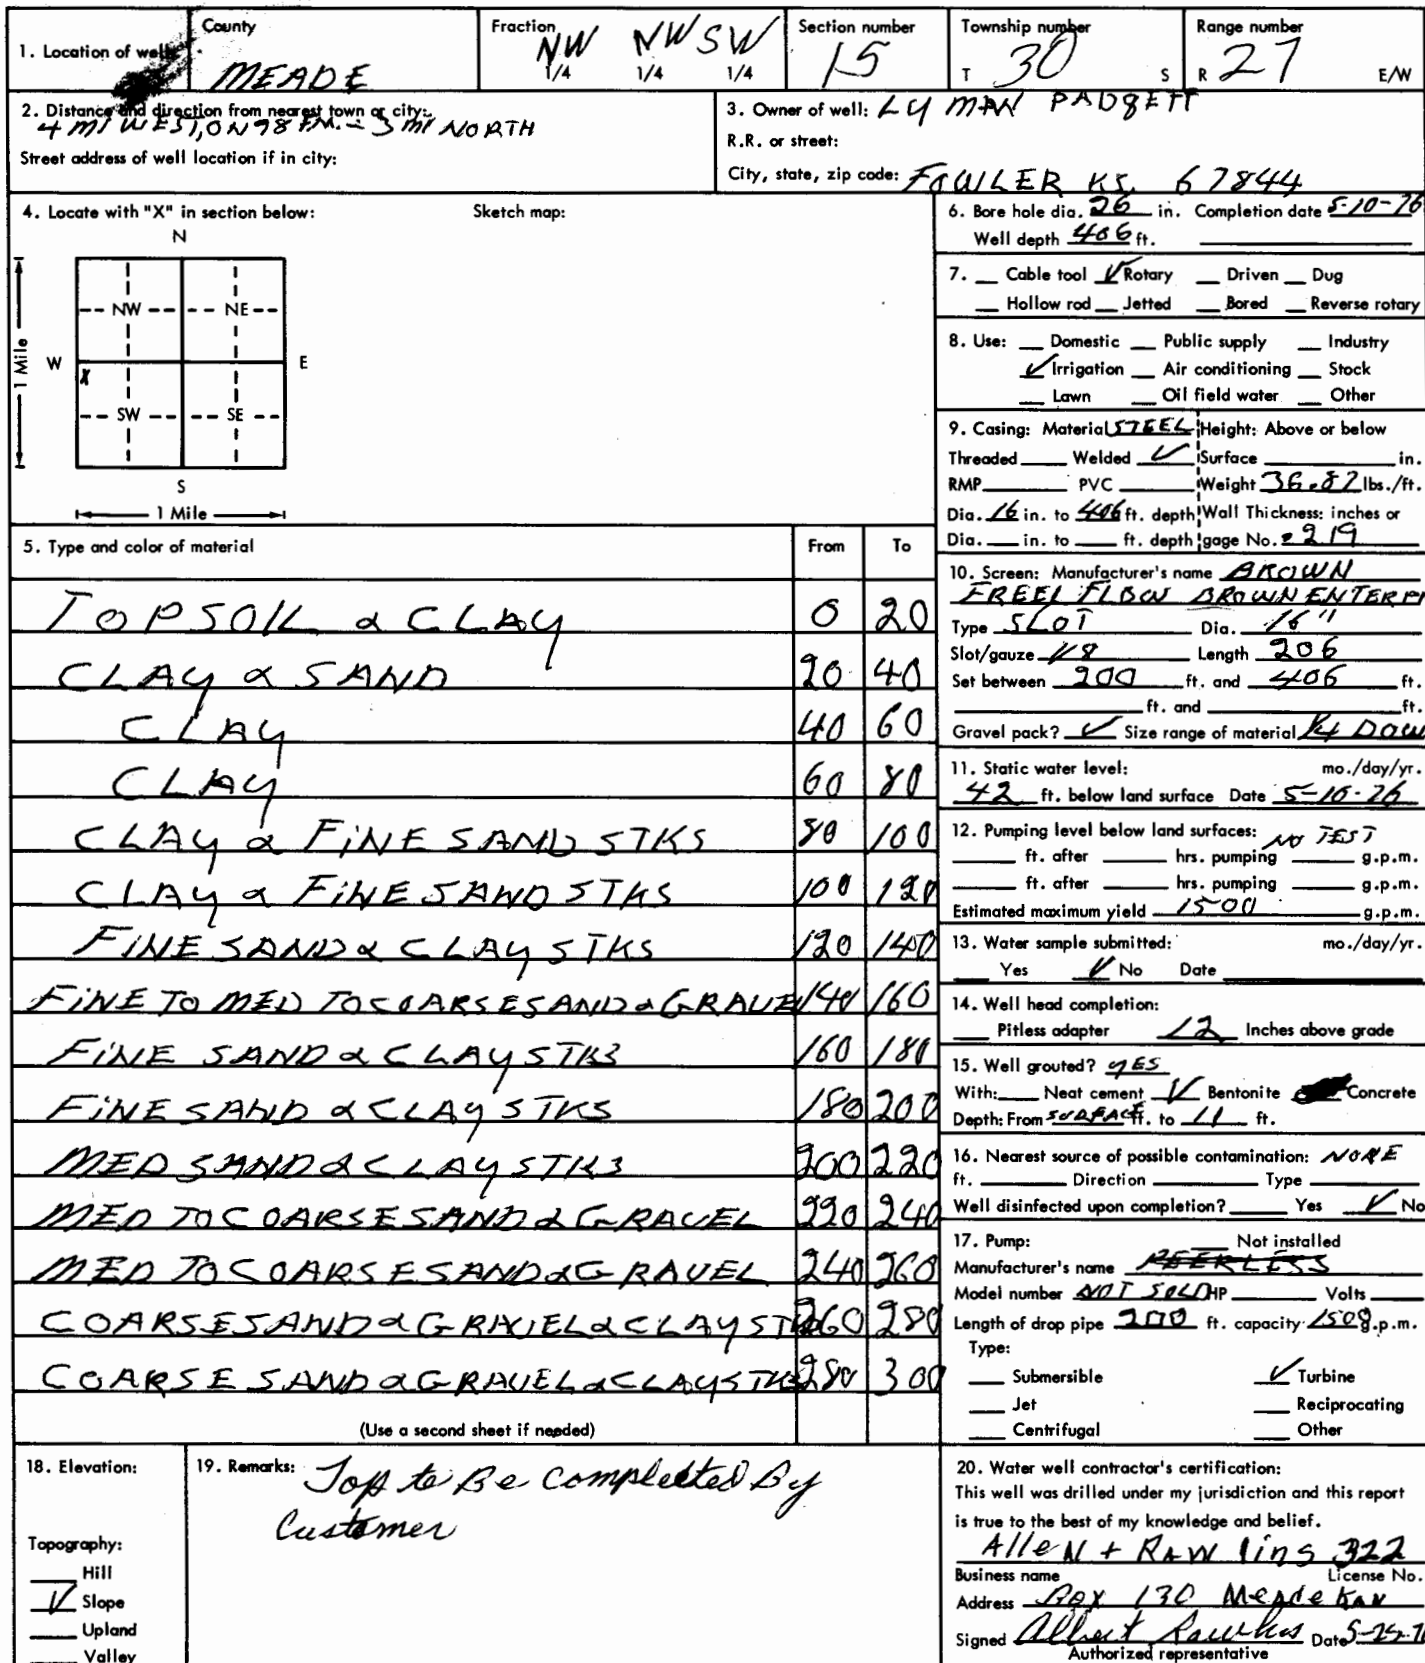 1. Location of well: County MEADE Fraction NW 1/4 NW 1/4 SW 1/4 Section number 15 Township number T 30 S Range number R 27 E/W
2. Distance and direction from nearest town or city:
4 MI WEST, ON 98 - 3 MI NORTH
Street address of well location if in city:
3. Owner of well: LYMAN PADGETT
R.R. or street:
City, state, zip code: FOWLER KS. 67844
4. Locate with "X" in section below: Sketch map:
N
NW NE
W E
X
SW SE
S
1 Mile
1 Mile
5. Type and color of material From To
TOPSOIL & CLAY 0 20
CLAY & SAND 20 40
CLAY 40 60
CLAY 60 80
CLAY & FINE SAND STKS 80 100
CLAY & FINE SAND STKS 100 120
FINE SAND & CLAY STKS 120 140
FINE TO MED TO COARSE SAND & GRAVEL 140 160
FINE SAND & CLAY STKS 160 180
FINE SAND & CLAY STKS 180 200
MED SAND & CLAY STKS 200 220
MED TO COARSE SAND & GRAVEL 220 240
MED TO COARSE SAND & GRAVEL 240 260
COARSE SAND & GRAVEL & CLAY STKS 260 280
COARSE SAND & GRAVEL & CLAY STKS 280 300
(Use a second sheet if needed)
6. Bore hole dia. 26 in. Completion date 5-10-76
Well depth 406 ft.
7. Cable tool ✓ Rotary Driven Dug
Hollow rod Jetted Bored Reverse rotary
8. Use: Domestic Public supply Industry
✓ Irrigation Air conditioning Stock
Lawn Oil field water Other
9. Casing: Material STEEL Height: Above or below
Threaded Welded ✓ Surface in.
RMP PVC Weight 36.87 lbs./ft.
Dia. 16 in. to 406 ft. depth Wall Thickness: inches or
Dia. in. to ft. depth gage No. .219
10. Screen: Manufacturer's name BROWN
FREEL FLOW BROWN ENTERP
Type SLOT Dia. 16"
Slot/gauze 1/8 Length 206
Set between 200 ft. and 406 ft.
ft. and ft.
Gravel pack? ✓ Size range of material 1/4 DOW
11. Static water level: mo./day/yr.
42 ft. below land surface Date 5-10-76
12. Pumping level below land surfaces: NO TEST
ft. after hrs. pumping g.p.m.
ft. after hrs. pumping g.p.m.
Estimated maximum yield 1500 g.p.m.
13. Water sample submitted: mo./day/yr.
Yes ✓ No Date
14. Well head completion:
Pitless adapter 12 Inches above grade
15. Well grouted? YES
With: Neat cement ✓ Bentonite Concrete
Depth: From SURFACE ft. to 11 ft.
16. Nearest source of possible contamination: NONE
ft. Direction Type
Well disinfected upon completion? Yes ✓ No
17. Pump: Not installed
Manufacturer's name PEERLESS
Model number NOT SOLD HP Volts
Length of drop pipe 200 ft. capacity 1500 g.p.m.
Type:
Submersible ✓ Turbine
Jet Reciprocating
Centrifugal Other
18. Elevation:
Topography:
Hill
✓ Slope
Upland
Valley
19. Remarks: Top to Be Completed By
Customer
20. Water well contractor's certification:
This well was drilled under my jurisdiction and this report
is true to the best of my knowledge and belief.
Allen + Rawlins 322
Business name License No.
Address Box 130 Meade Kan
Signed Albert Rawlins Date
Authorized representative